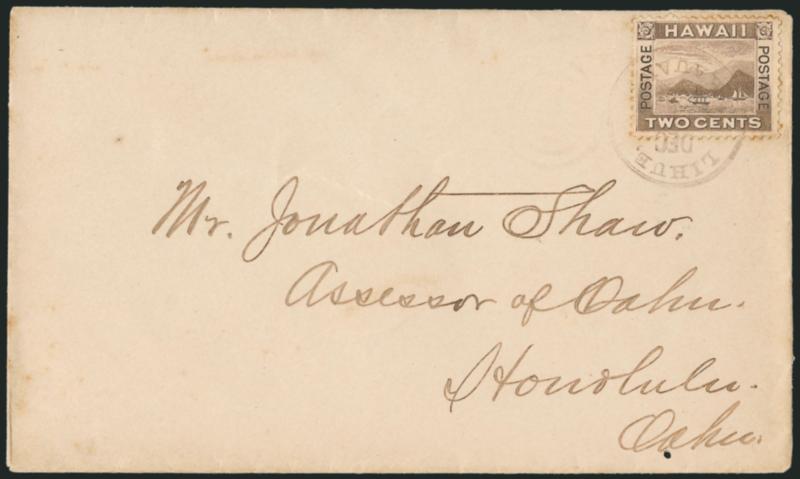 HAWAII
POSTAGE
POSTAGE
TWO CENTS
LIHUE.
DEC
Mr. Jonathan Shaw.
Assessor of Oahu.
Honolulu.
Oahu.